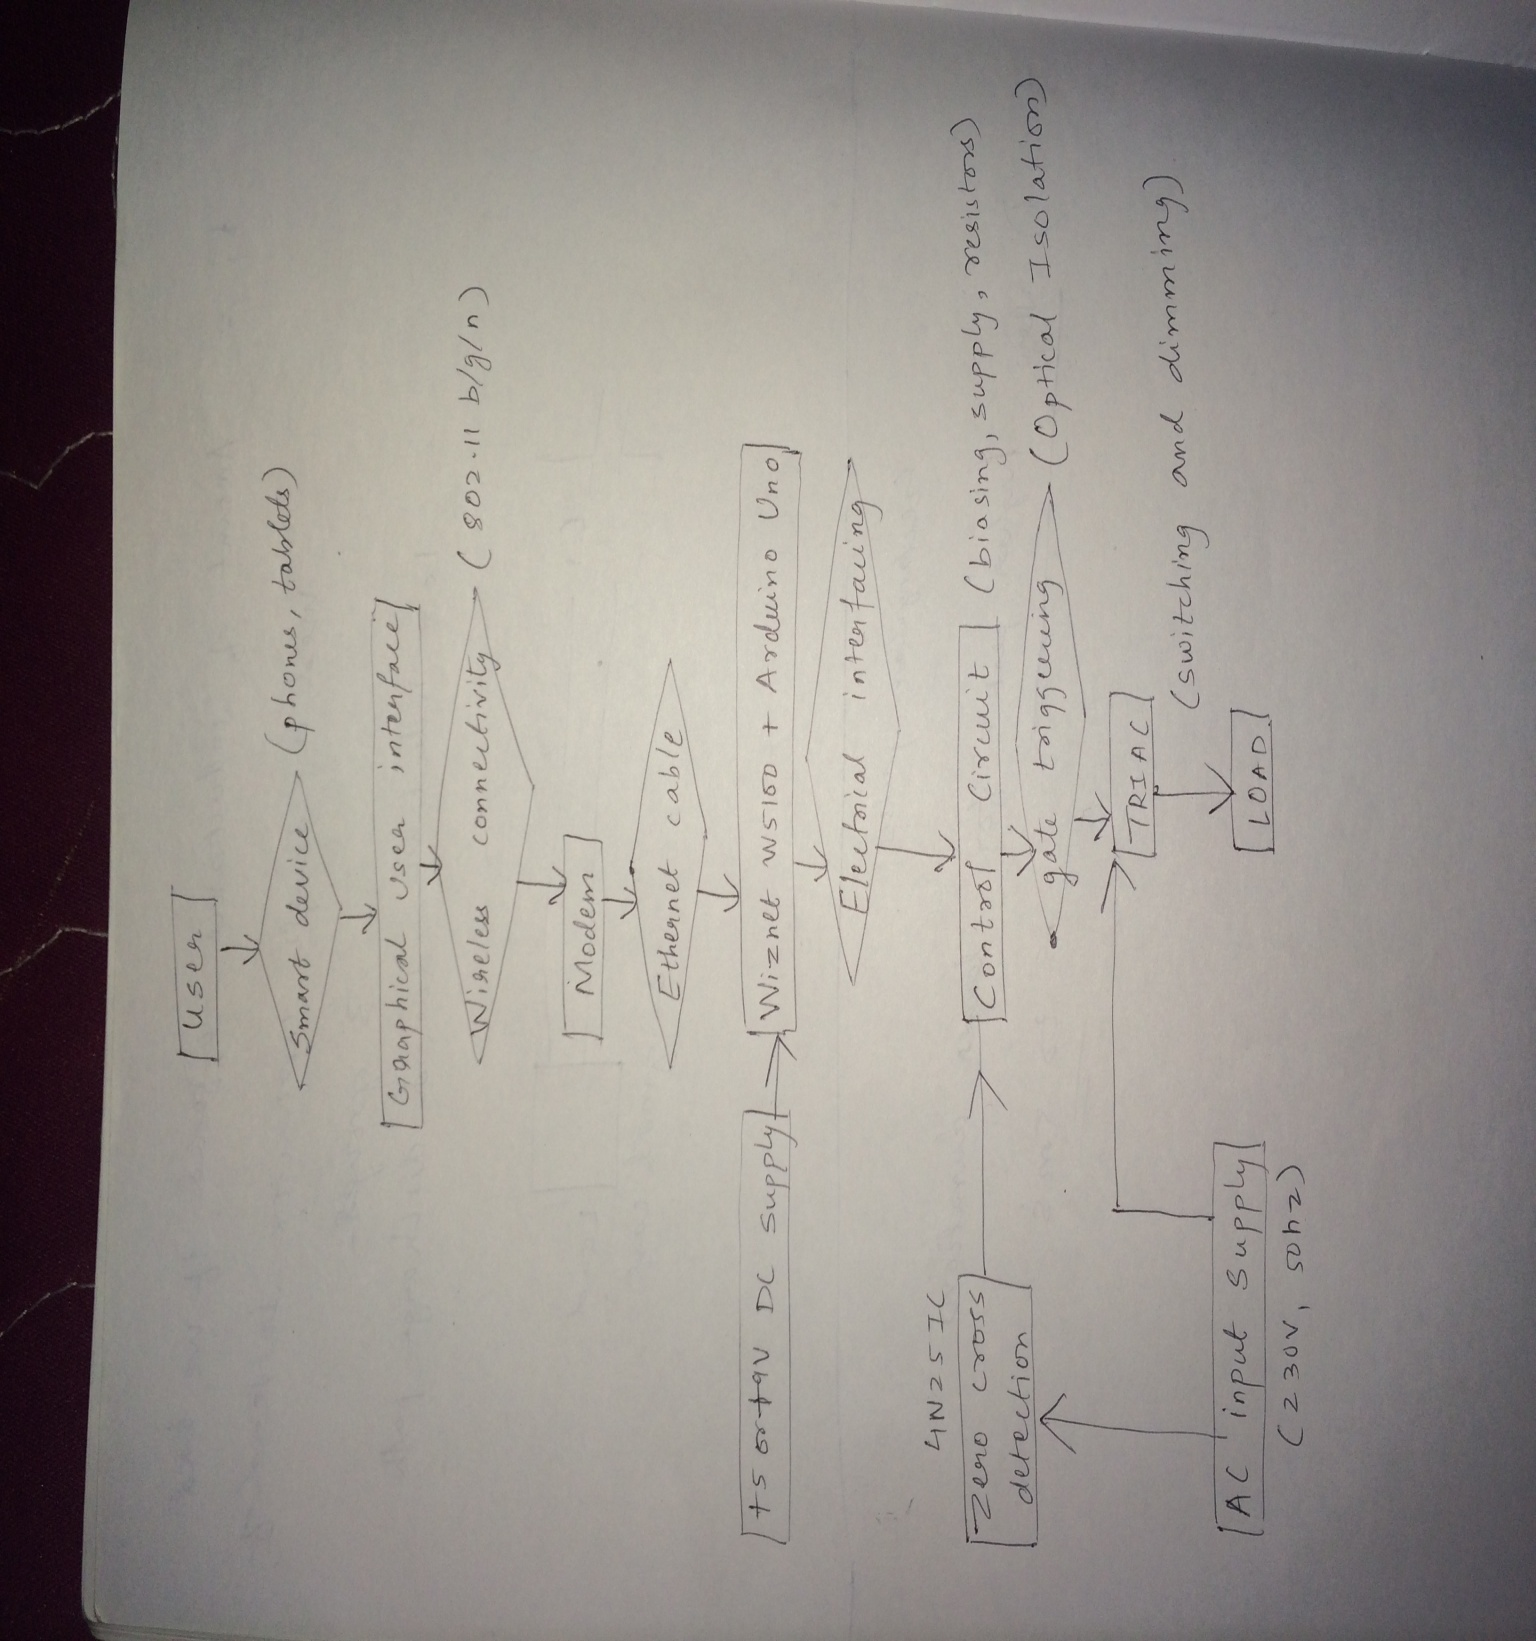 User
Smart device (phones, tablets)
Graphical user interface
Wireless connectivity (802.11 b/g/n)
Modem
Ethernet cable
+5 or +9V DC supply
Wiznet W5100 + Arduino Uno
Electrical interfacing
4N25 IC
Zero cross
detection
Control Circuit (biasing, supply, resistors)
gate triggering (Optical Isolation)
TRIAC
(switching and dimming)
AC input supply
(230V, 50hz)
LOAD